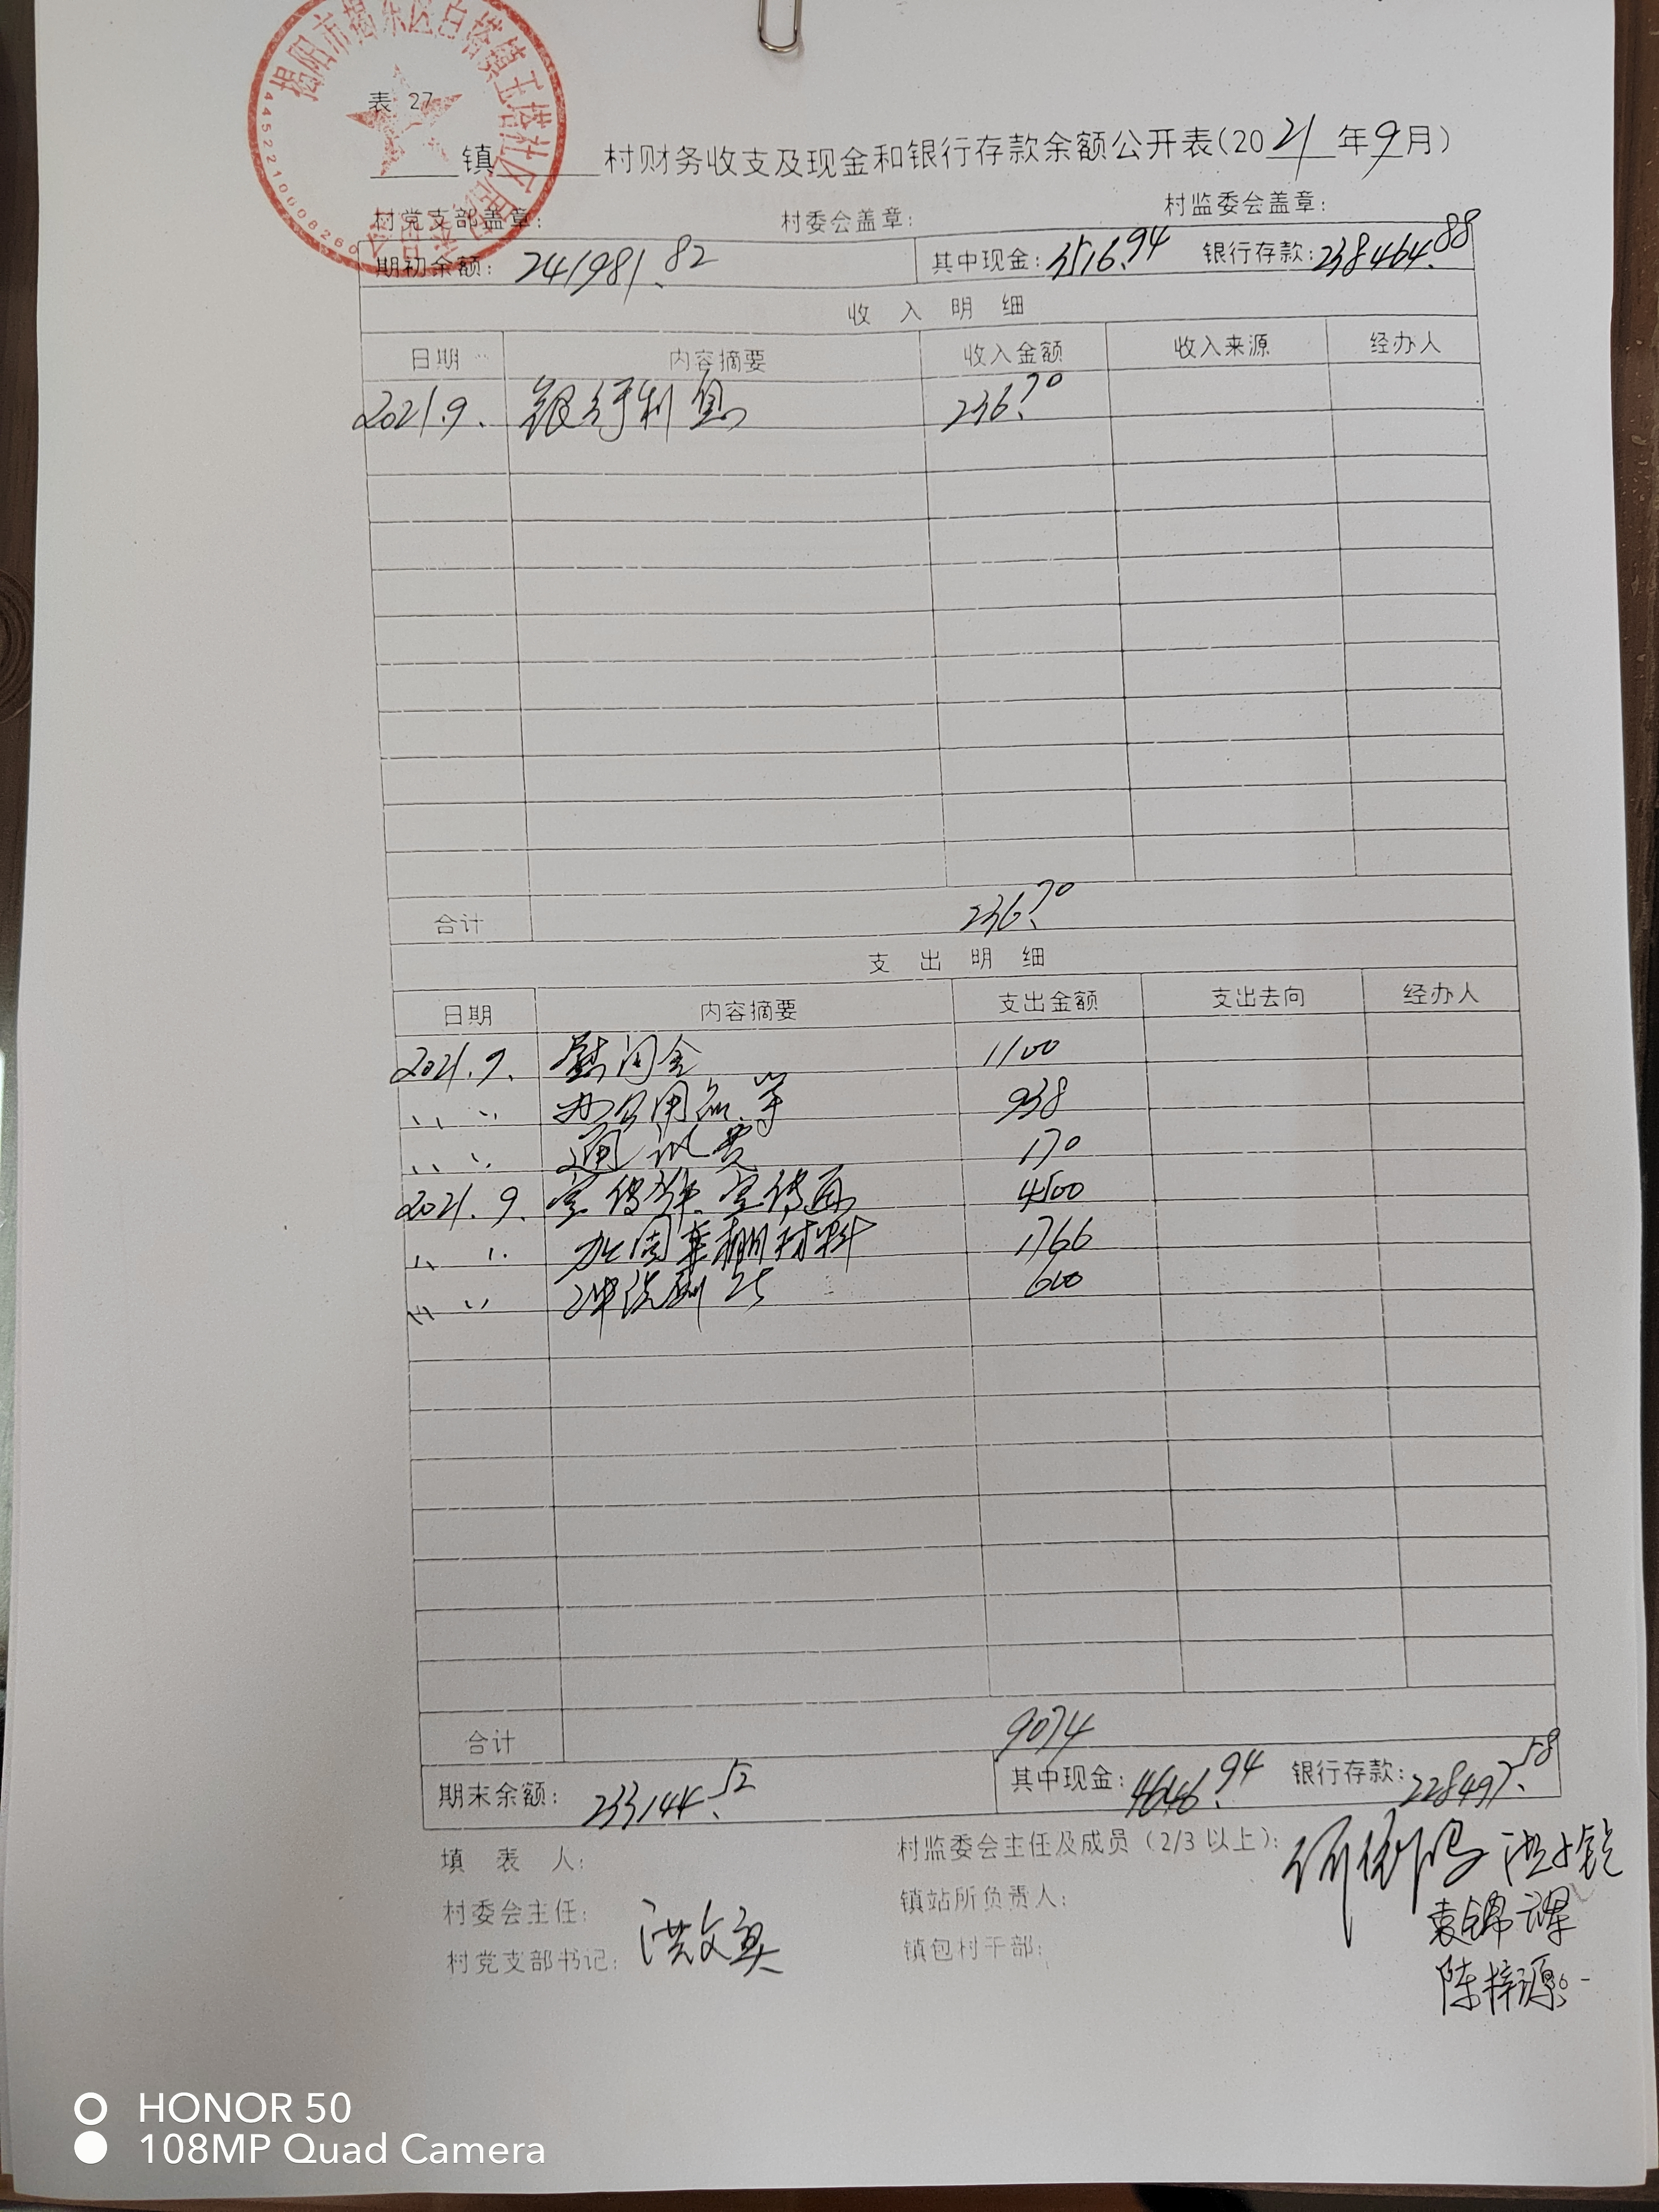 揭阳市揭东区白塔镇玉塔社区居民委员会
4452210008260
表 27
镇 村财务收支及现金和银行存款余额公开表(2021年9月)
村党支部盖章: 村委会盖章: 村监委会盖章:
期初余额: 241981.82 其中现金: 3516.94 银行存款: 238464.88
收 入 明 细
日期 内容摘要 收入金额 收入来源 经办人
2021.9. 银行利息 236.70
合计 236.70
支 出 明 细
日期 内容摘要 支出金额 支出去向 经办人
2021.9. 慰问金 1100
〃 〃 办公用品.等 938
〃 〃 通讯费 170
2021.9. 宣传 宣传 4500
〃 〃 加固车棚材料 1766
〃 〃 冲洗 600
合计 9074
期末余额: 233144.52 其中现金: 4646.94 银行存款: 228497.58
填 表 人: 村监委会主任及成员(2/3以上):
村委会主任: 镇站所负责人: 袁锦
村党支部书记: 洪文 镇包村干部: 陈梓源
HONOR 50
108MP Quad Camera